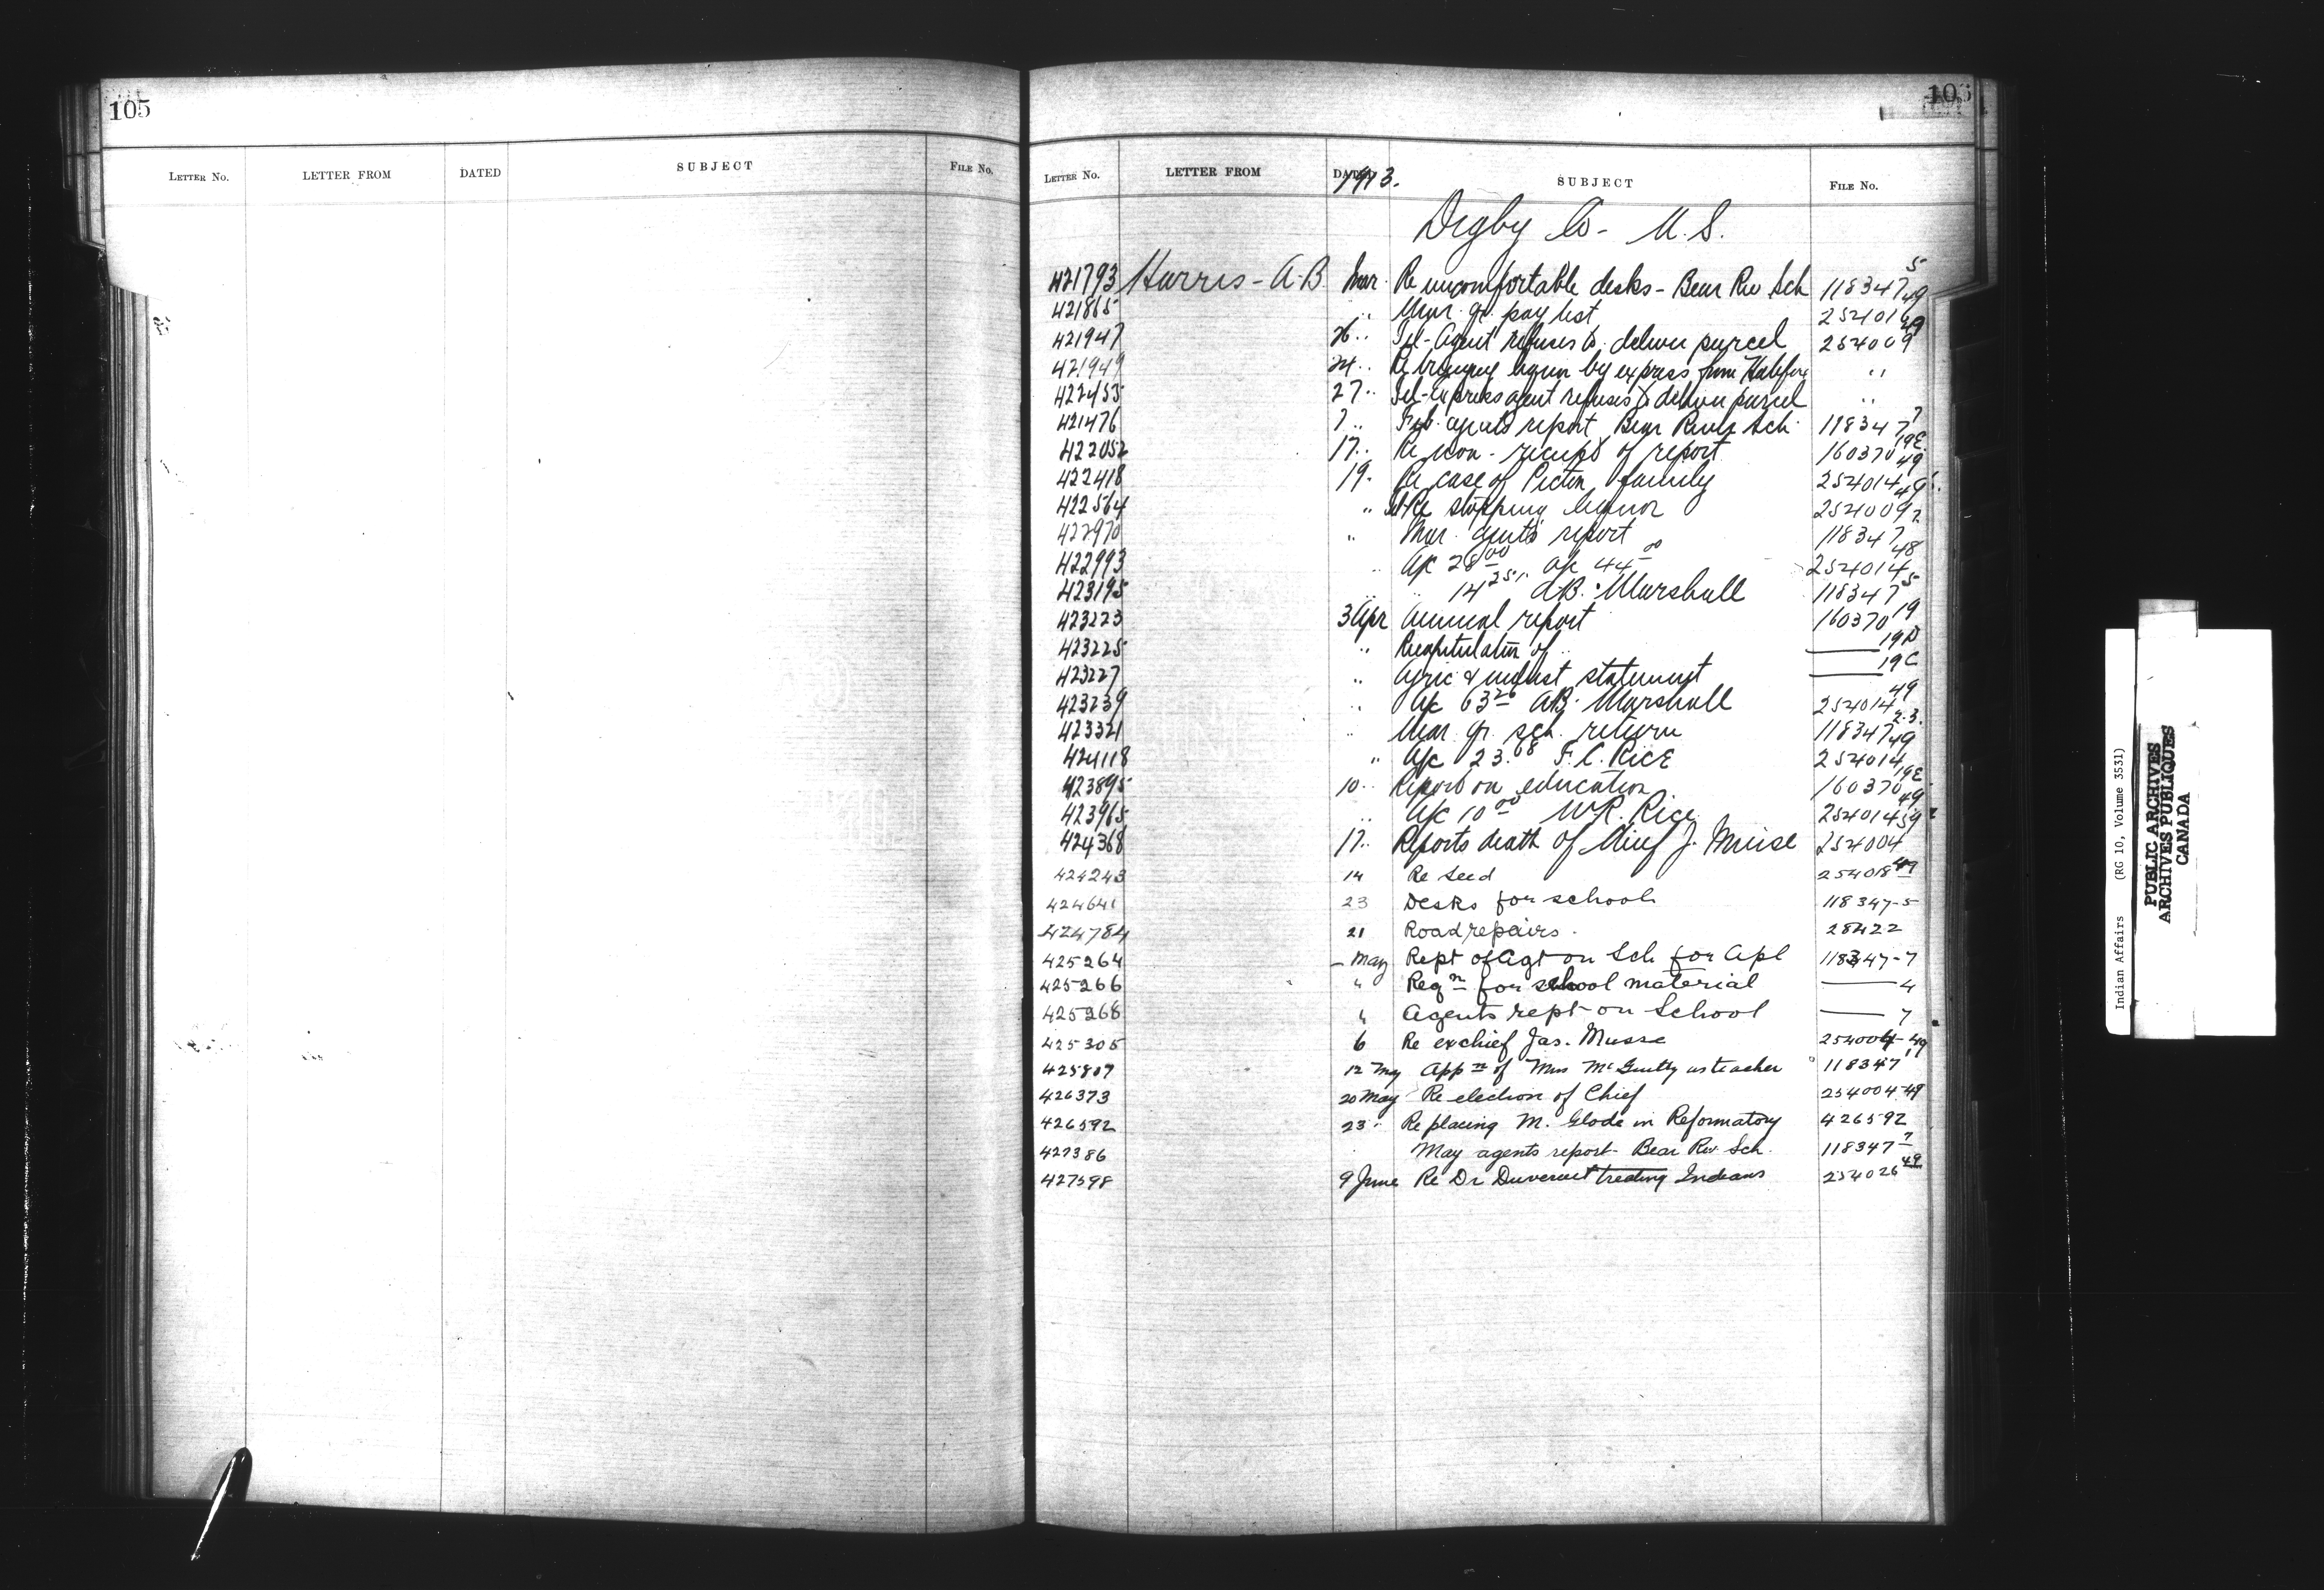 105
LETTER NO. LETTER FROM DATED SUBJECT FILE No.
LETTER NO. LETTER FROM DATED 1913. SUBJECT FILE No.
Digby Co - N.S.
421793 Harris - A.B. Mar. Re uncomfortable desks - Bear Riv Sch 118347 5
421865 " Mar. qr. pay list 254016 49
421947 26 " Tel- Agent refuses to deliver parcel 254009 49
421949 24 " Re bringing liquor by express from Halifax "
422455 27 " Tel-Express agent refuses to deliver parcel "
421476 7 " Feb. agents report Bear River Sch. 118347 7
422052 17 " Re non-receipt of report 160370 19E
422418 19 " Re case of Picton family 254014 49
422564 " Tel-Re stopping liquor 254009 49
422970 " Mar. agents report 118347 7
422993 " a/c 28 00 a/c 44 00 254014 48
423195 " " 14 25 A.B. Marshall 118347 5
423223 3 Apr Annual report 160370 19
423225 " Recapitulation of " —— 19D
423227 " Agric & indust statement —— 19C
423239 " a/c 63 26 A.B. Marshall 254014 49
423321 " Mar. qr. sch. return 118347 2-3.
424118 " a/c 23.68 F.C. RICE 254014 49
423895 10 " Report on education 160370 19E
423965 " a/c 10 00 W.R. Rice 254014 49
424368 17 " Reports death of Chief J. Muise 254004
424243 14 Re Seed 254018 49
424641 23 Desks for school 118347-5
424784 21 Road repairs. 28422
425264 - May Rept of Agt on Sch for Apl 118347-7
425266 " Reqn for school material —— 4
425268 " Agents rept on School —— 7
425305 6 Re exchief Jas. Musse 254004-49
425807 12 May Appn of Miss McGuilty as teacher 118347 1
426373 20 May Re election of Chief 254004-49
426592 23 " Re placing M. Glode in Reformatory 426592
427386 May agents report - Bear Riv Sch. 118347 7
427598 9 June Re Dr Duvernet treating Indians 254026 49
Indian Affairs (RG 10, Volume 3531)
PUBLIC ARCHIVES
ARCHIVES PUBLIQUES
CANADA